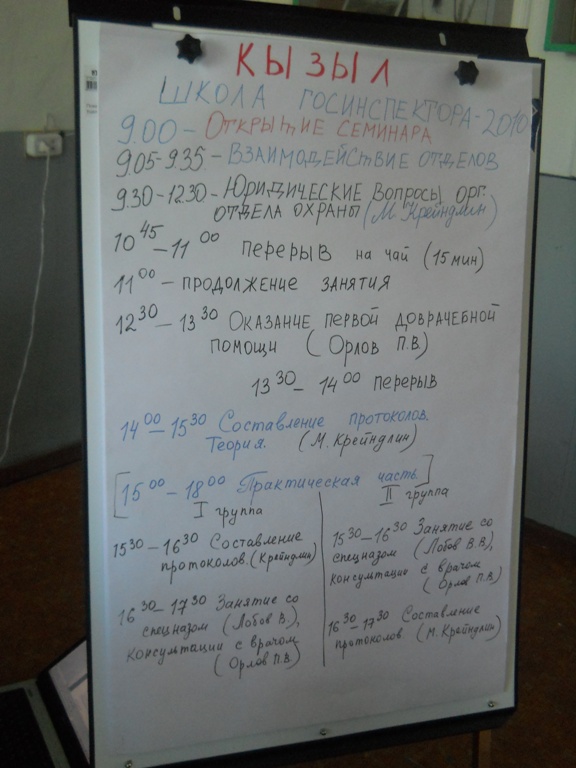 КЫЗЫЛ
ШКОЛА ГОСИНСПЕКТОРА-2010
9.00 - ОТКРЫТИЕ СЕМИНАРА
9.05-9.35 - ВЗАИМОДЕЙСТВИЕ ОТДЕЛОВ
9.30-12.30 - ЮРИДИЧЕСКИЕ ВОПРОСЫ ОРГ.
ОТДЕЛА ОХРАНЫ (М. Крейндлин)
10 45 - 11 00 ПЕРЕРЫВ НА ЧАЙ (15 МИН)
11 00 - ПРОДОЛЖЕНИЕ ЗАНЯТИЯ
12 30 - 13 30 ОКАЗАНИЕ ПЕРВОЙ ДОВРАЧЕБНОЙ
ПОМОЩИ (ОРЛОВ П.В.)
13 30 - 14 00 ПЕРЕРЫВ
14 00 - 15 30 Составление протоколов.
Теория. (М. Крейндлин)
[15 00 - 18 00 Практическая часть.]
I группа
15 30 - 16 30 Составление
протоколов. (Крейндлин)
16 30 - 17 30 Занятие со
спецназом (Лобов В.),
консультации с врачом
(Орлов П.В.)
II группа
15 30 - 16 30 Занятие со
спецназом (Лобов В.В.),
консультации с врачом
(Орлов П.В.)
16 30 - 17 30 Составление
протоколов. (М. Крейндлин)